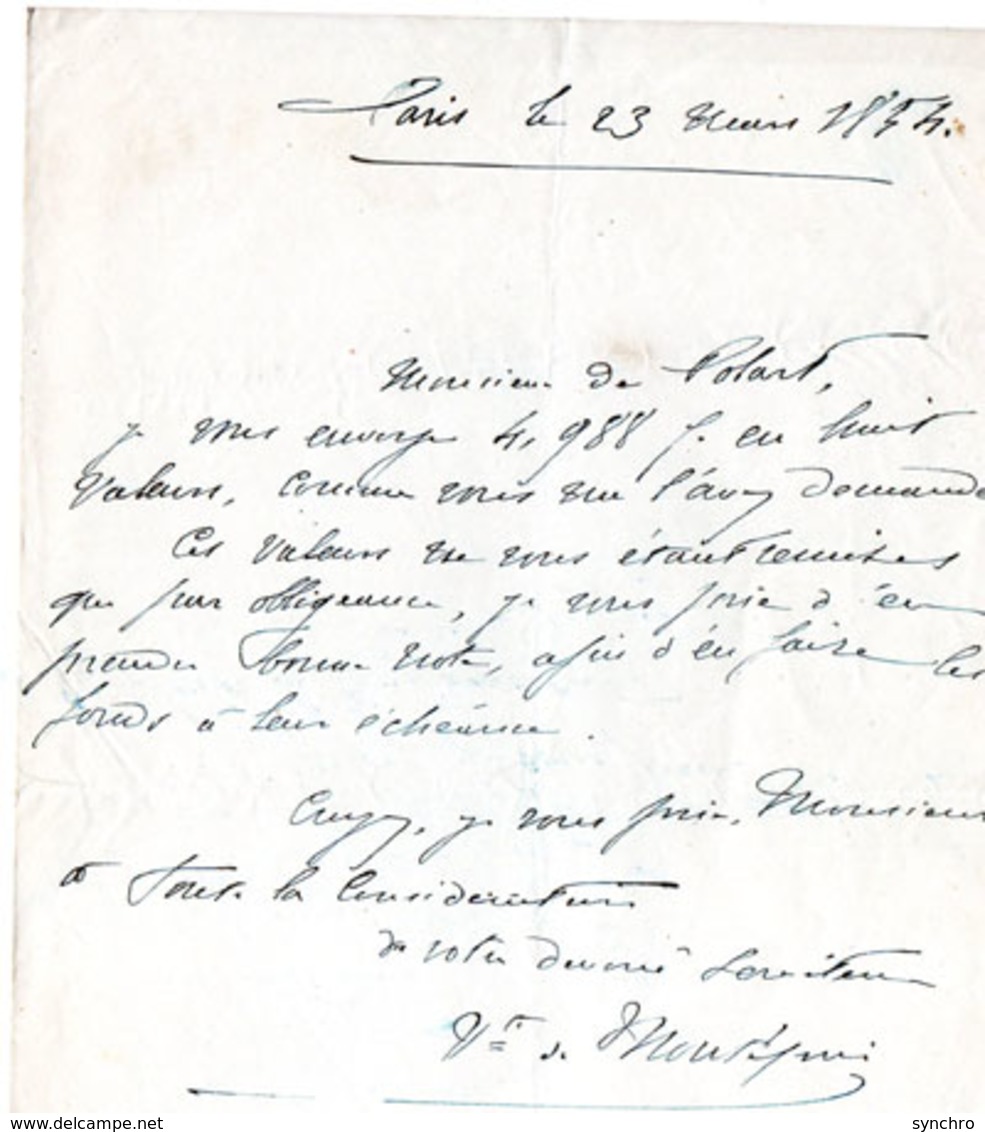 Paris le 23 Mars 1854.
Monsieur de Polart,
je vous envoye 4,988 f. en huit
Valeurs, comme vous me l'avez demandé
Ces Valeurs ne vous étant remises
que par obligeance, je vous prie d'en
prendre bonne note, afin d'en faire les
fonds à leur échéance.
Croyez, je vous prie, Monsieur
à toute la Considération
de votre dévoué Serviteur
Vte de
synchro
www.delcampe.net